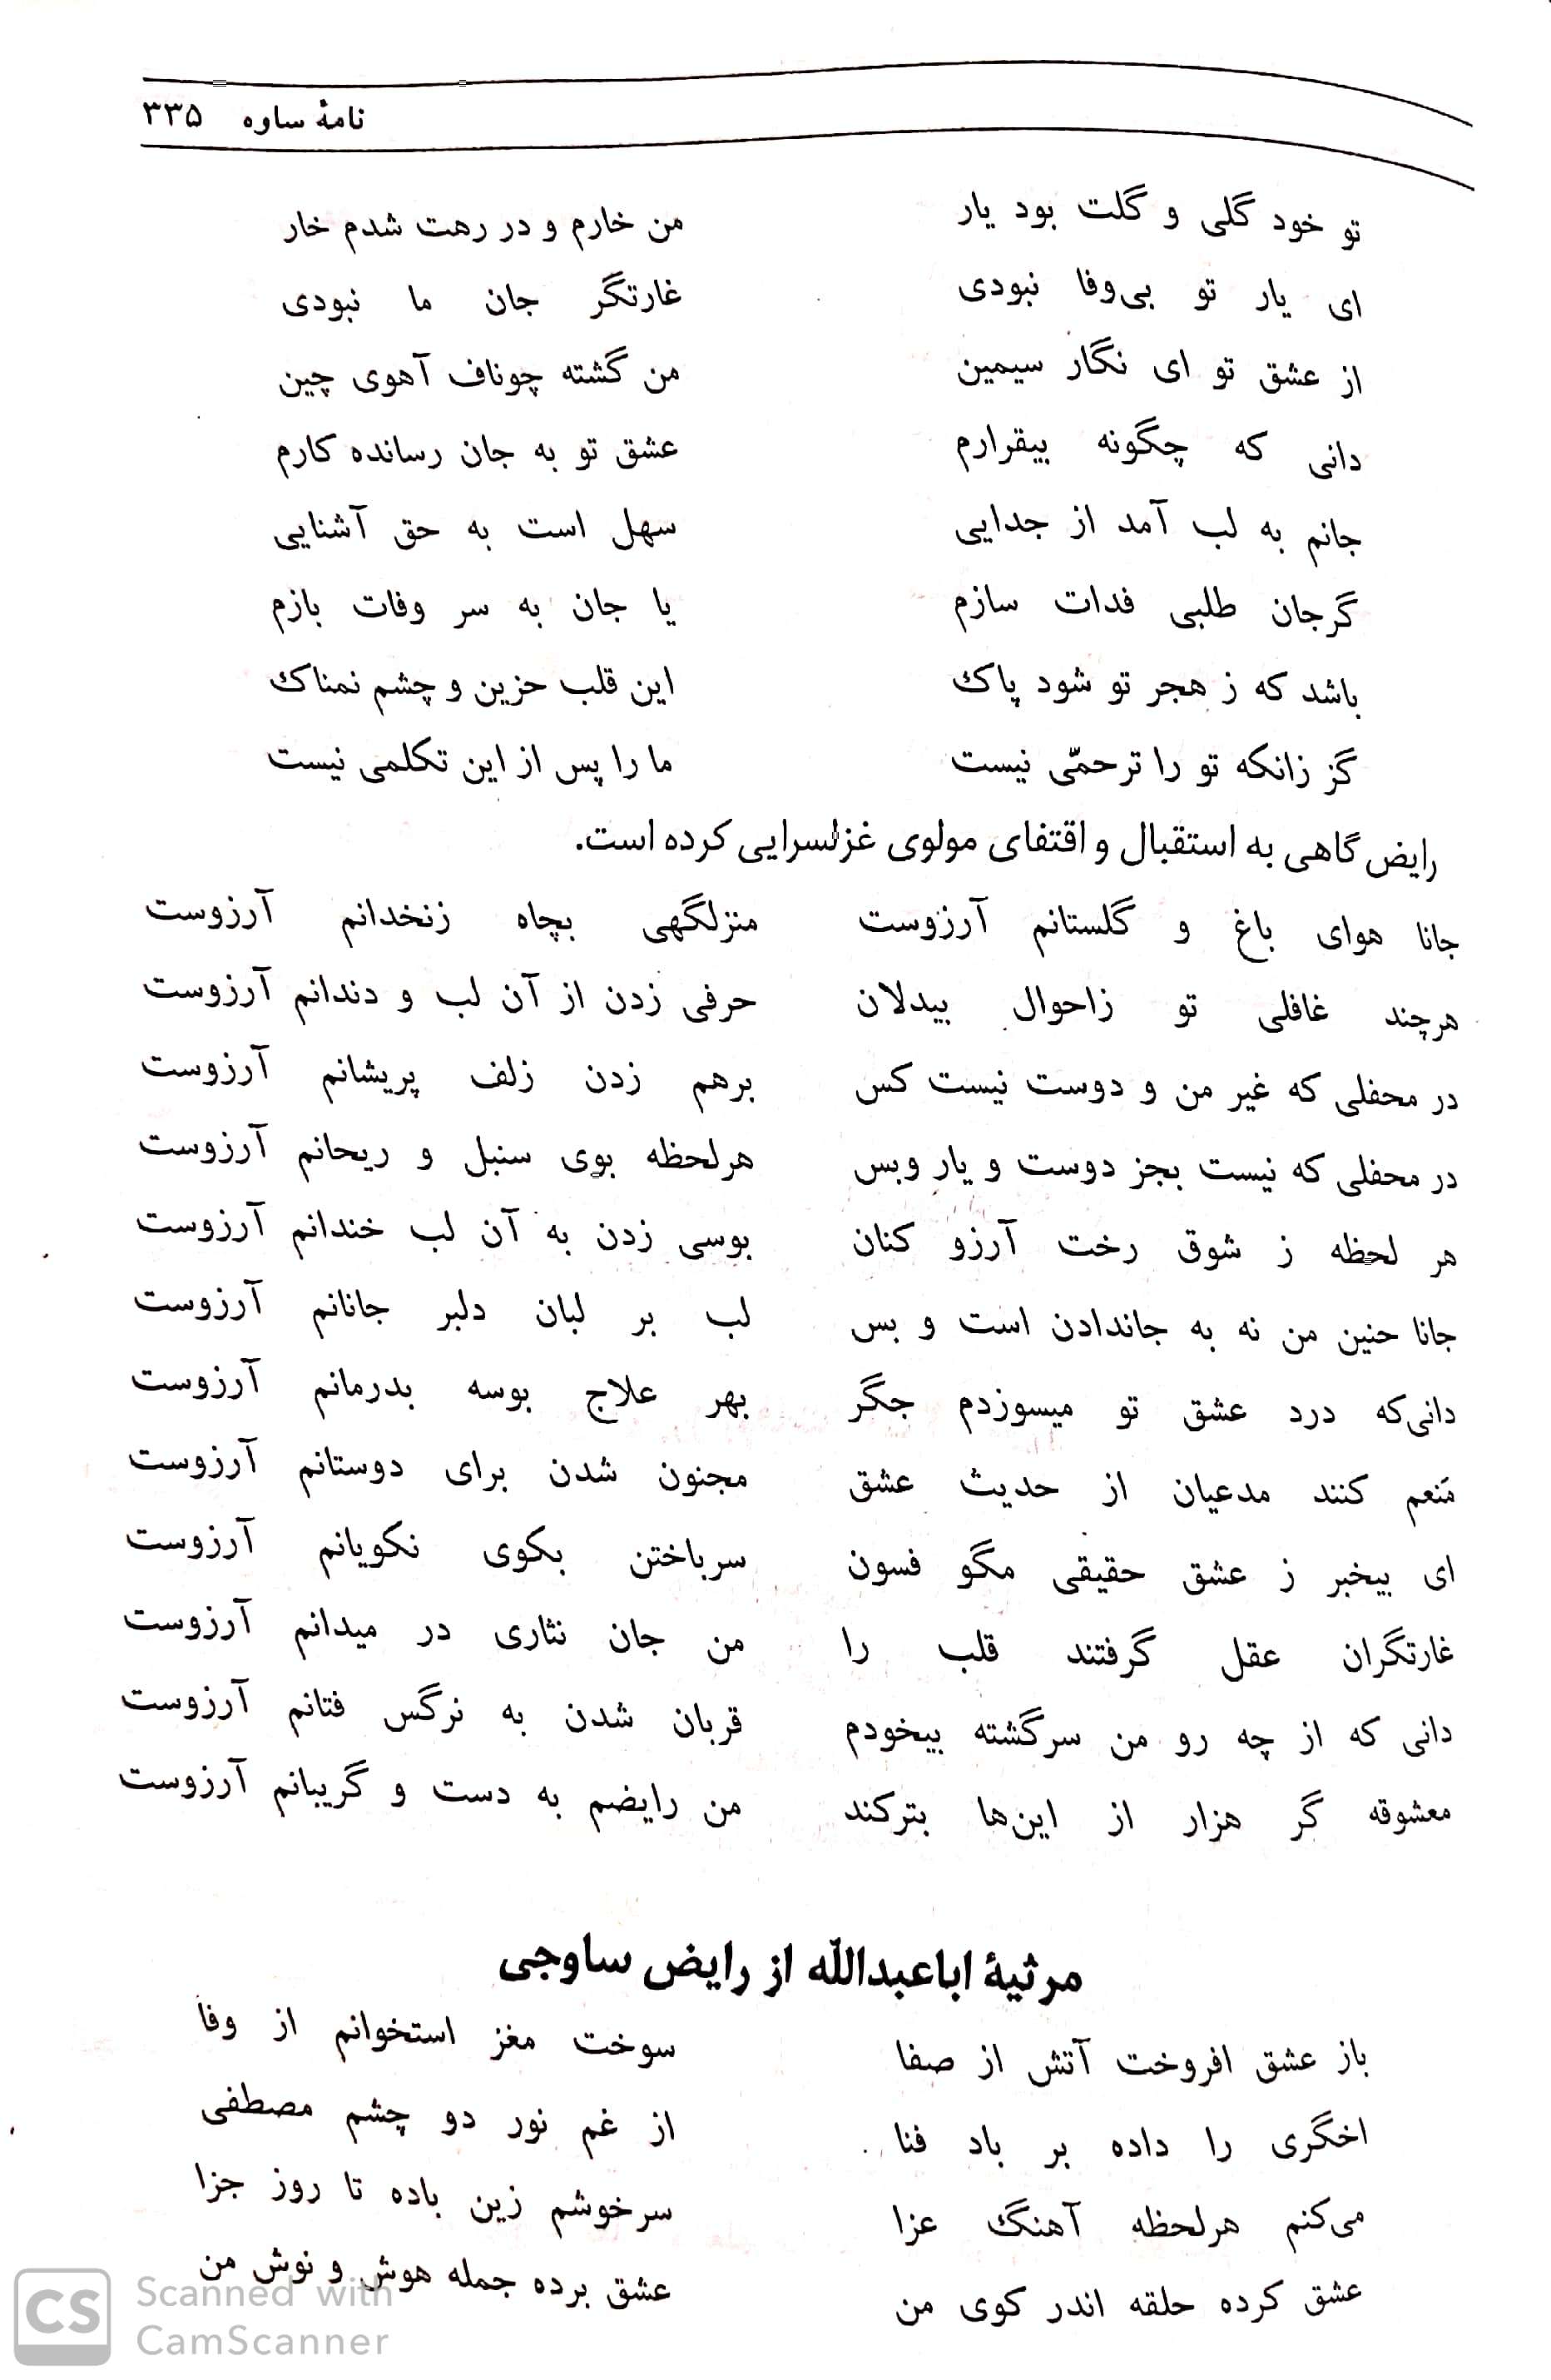 نامهٔ ساوه ۳۳۵
تو خود گلی و گلت بود یار من خارم و در رهت شدم خار
ای یار تو بی‌وفا نبودی غارتگر جان ما نبودی
از عشق تو ای نگار سیمین من گشته چوناف آهوی چین
دانی که چگونه بیقرارم عشق تو به جان رسانده کارم
جانم به لب آمد از جدایی سهل است به حق آشنایی
گرجان طلبی فدات سازم یا جان به سر وفات بازم
باشد که ز هجر تو شود پاک این قلب حزین و چشم نمناک
گز زانکه تو را ترحمّی نیست ما را پس از این تکلمی نیست
رایض گاهی به استقبال و اقتفای مولوی غزلسرایی کرده است.
جانا هوای باغ و گلستانم آرزوست منزلگهی بچاه زنخدانم آرزوست
هرچند غافلی تو زاحوال بیدلان حرفی زدن از آن لب و دندانم آرزوست
در محفلی که غیر من و دوست نیست کس برهم زدن زلف پریشانم آرزوست
در محفلی که نیست بجز دوست و یار وبس هرلحظه بوی سنبل و ریحانم آرزوست
هر لحظه ز شوق رخت آرزو کنان بوسی زدن به آن لب خندانم آرزوست
جانا حنین من نه به جاندادن است و بس لب بر لبان دلبر جانانم آرزوست
دانی‌که درد عشق تو میسوزدم جگر بهر علاج بوسه بدرمانم آرزوست
مَنعم کنند مدعیان از حدیث عشق مجنون شدن برای دوستانم آرزوست
ای بیخبر ز عشق حقیقی مگو فسون سرباختن بکوی نکویانم آرزوست
غارتگران عقل گرفتند قلب را من جان نثاری در میدانم آرزوست
دانی که از چه رو من سرگشته بیخودم قربان شدن به نرگس فتانم آرزوست
معشوقه گر هزار از این‌ها بترکند من رایضم به دست و گریبانم آرزوست
مرثیهٔ اباعبداللّه از رایض ساوجی
باز عشق افروخت آتش از صفا سوخت مغز استخوانم از وفا
اخگری را داده بر باد فنا از غم نور دو چشم مصطفی
می‌کنم هرلحظه آهنگ عزا سرخوشم زین باده تا روز جزا
عشق کرده حلقه اندر کوی من عشق برده جمله هوش و نوش من
CS Scanned with
CamScanner